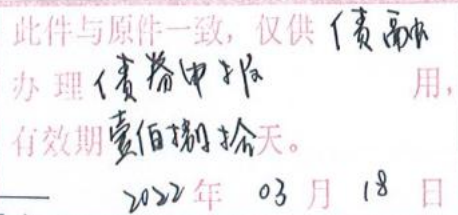 此件与原件一致，仅供债融
办理债务申报用，
有效期壹佰捌拾天。
2022年 03月 18日